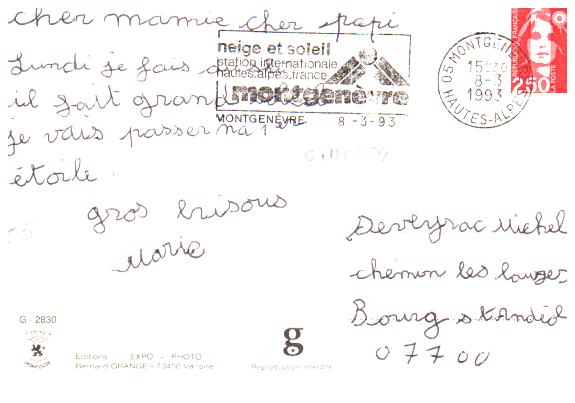 cher mamie cher papi
neige et soleil
station internationale
hautes.alpes.france
montgenèvre
MONTGENÈVRE 8-3-93
05 MONTGENEVRE
15H
8-3
1993
HAUTES-ALPES
RÉPUBLIQUE FRANÇAISE
LA POSTE
2,50
Lundi je fais du
il fait grand
je vais passer ma 1ère
étoile
gros bisous
Marie
Deveyrac Michel
chemin les
Bourg st Andéol
07700
G - 2830
g
Editions EXPO - PHOTO
Bernard GRANGE - 73450 Valloire
Reproduction interdite